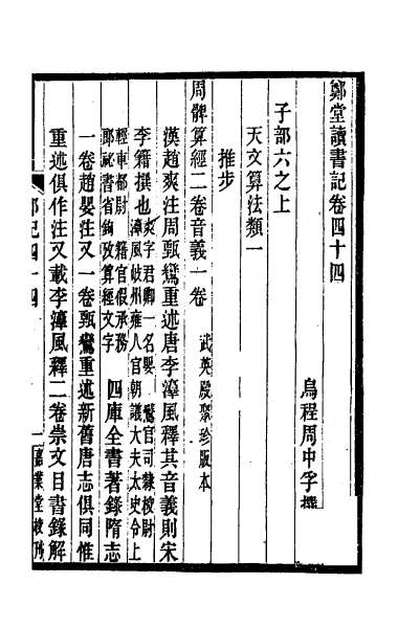 鄭堂讀書記卷四十四
烏程周中孚撰
子部六之上
天文算法類一
推步
周髀算經二卷音義一卷 武英殿聚珍版本
漢趙爽注周甄鸞重述唐李淳風釋其音義則宋
李籍撰也 爽字君卿一名嬰 鸞官司隸校尉
淳風岐州雍人官朝議大夫太史令上
輕車都尉 籍官假承務
郎祕書省鉤攷算經文字 四庫全書著錄隋志
一卷趙嬰注又一卷甄鸞重述新舊唐志俱同惟
重述俱作注又載李淳風釋二卷崇文目書錄解
一 嘉業堂校刊